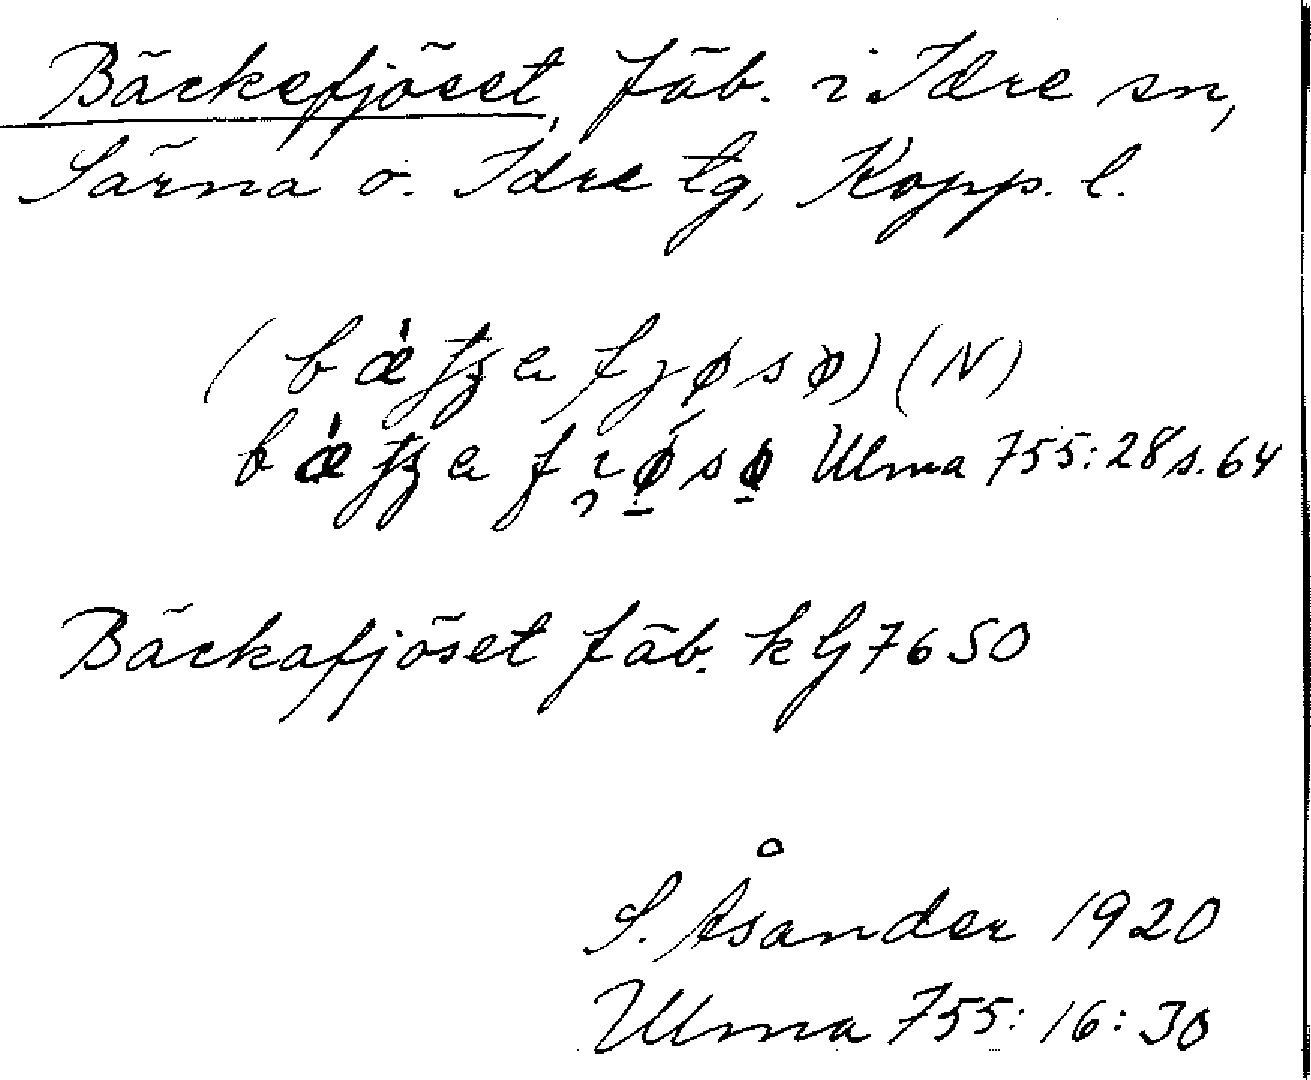 Bäckefjöset, fäb. i Idre sn,
Särna o. Idre tg, Kopp. l.
(N)
Ulma 755:28 s. 64
Bäckafjöset fäb. k G 7650
S. Åsander 1920
Ulma 755:16:30